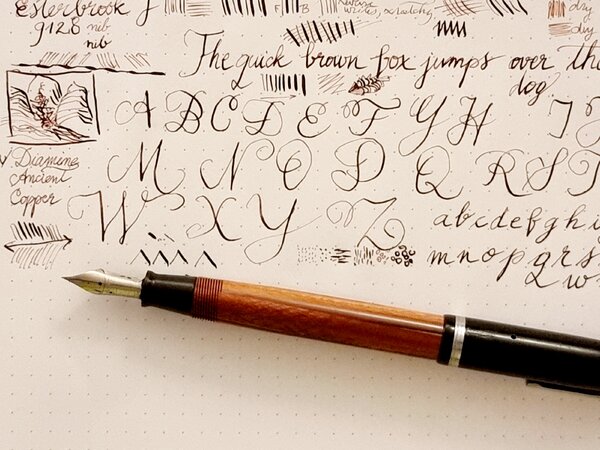 Esterbrook
9128 nib
nib
F B
dry
The quick brown fox jumps over the
dog
A B C D E F G H I
Diamine
Ancient
Copper
M N O P Q R S T
W X Y Z
a b c d e f g h i
m n o p q r s
w